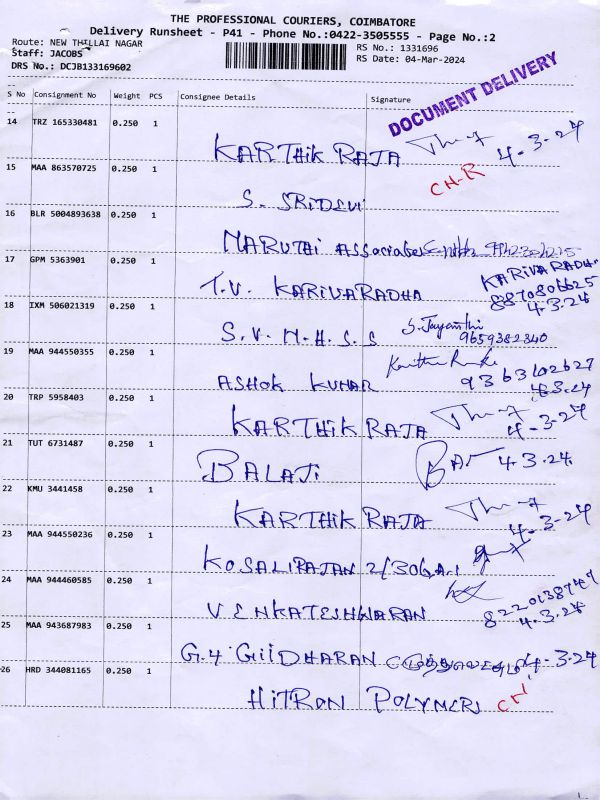 THE PROFESSIONAL COURIERS, COIMBATORE
Delivery Runsheet - P41 - Phone No.:0422-3505555 - Page No.:2
Route: NEW THILLAI NAGAR
Staff: JACOBS
DRS No.: DCJB133169602
RS No.: 1331696
RS Date: 04-Mar-2024
DOCUMENT DELIVERY
S No Consignment No Weight PCS Consignee Details Signature
14 TRZ 165330481 0.250 1
KARTHIK RAJA 4-3-24
15 MAA 863570725 0.250 1
CN-R
S. SRIDEVI
16 BLR 5004893638 0.250 1
MARUTHI Associates
17 GPM 5363901 0.250 1
T.V. KARIVARADHA KARIVARADHA
8870806625
4.3.24
18 IXM 506021319 0.250 1
S.V.M.H.S.S S. Jayanthi
9659382340
19 MAA 944550355 0.250 1
ASHOK KUMAR 9363102627
4.3.24
20 TRP 5958403 0.250 1
KARTHIK RAJA 4-3-24
21 TUT 6731487 0.250 1
BALAJI 4.3.24.
22 KMU 3441458 0.250 1
KARTHIK RAJA 4-3-24
23 MAA 944550236 0.250 1
KOSALIRAJAN 2/30
24 MAA 944460585 0.250 1
VENKATESHWARAN 8220138747
4.3.24
25 MAA 943687983 0.250 1
G.Y. GIIDHARAN 4-3.24
26 HRD 344081165 0.250 1
HITRON POLYMERS CN